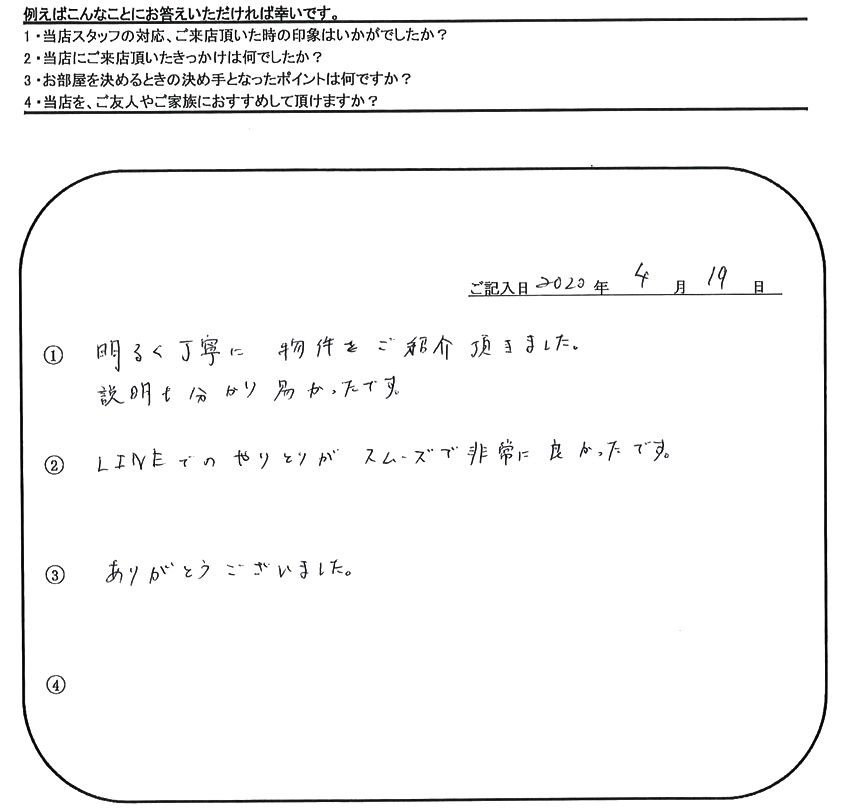 例えばこんなことにお答えいただければ幸いです。
1・当店スタッフの対応、ご来店頂いた時の印象はいかがでしたか？
2・当店にご来店頂いたきっかけは何でしたか？
3・お部屋を決めるときの決め手となったポイントは何ですか？
4・当店を、ご友人やご家族におすすめして頂けますか？
ご記入日 2020 年 4 月 19 日
① 明るく丁寧に 物件をご紹介頂きました。
説明も分かり易かったです。
② LINEでのやりとりが スムーズで非常に良かったです。
③ ありがとうございました。
④